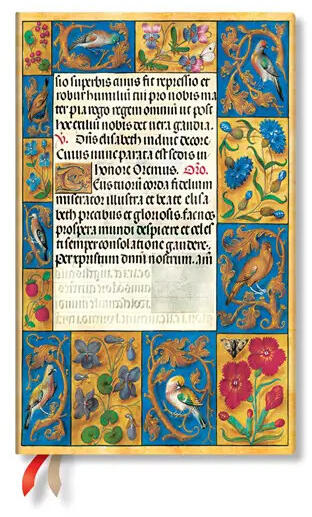 sio superbis animis fit repressio et
robur humiliũ tui pro nobis ma
ter pia rogo regem omniũ ut post
hoc exiliũ nobis det vera gaudia.
V. Dñs elisabeth induit decore
Cuius nunc parata est sedis in
honore Oremus. Oro.
corda fidelium
miserator illustra et beate elisa
beth precibus et gloriosis fac nos
prospera mundi despicere et celes
ti semper consolatione gaudere.
per xpristum dñm nostrum. am̃